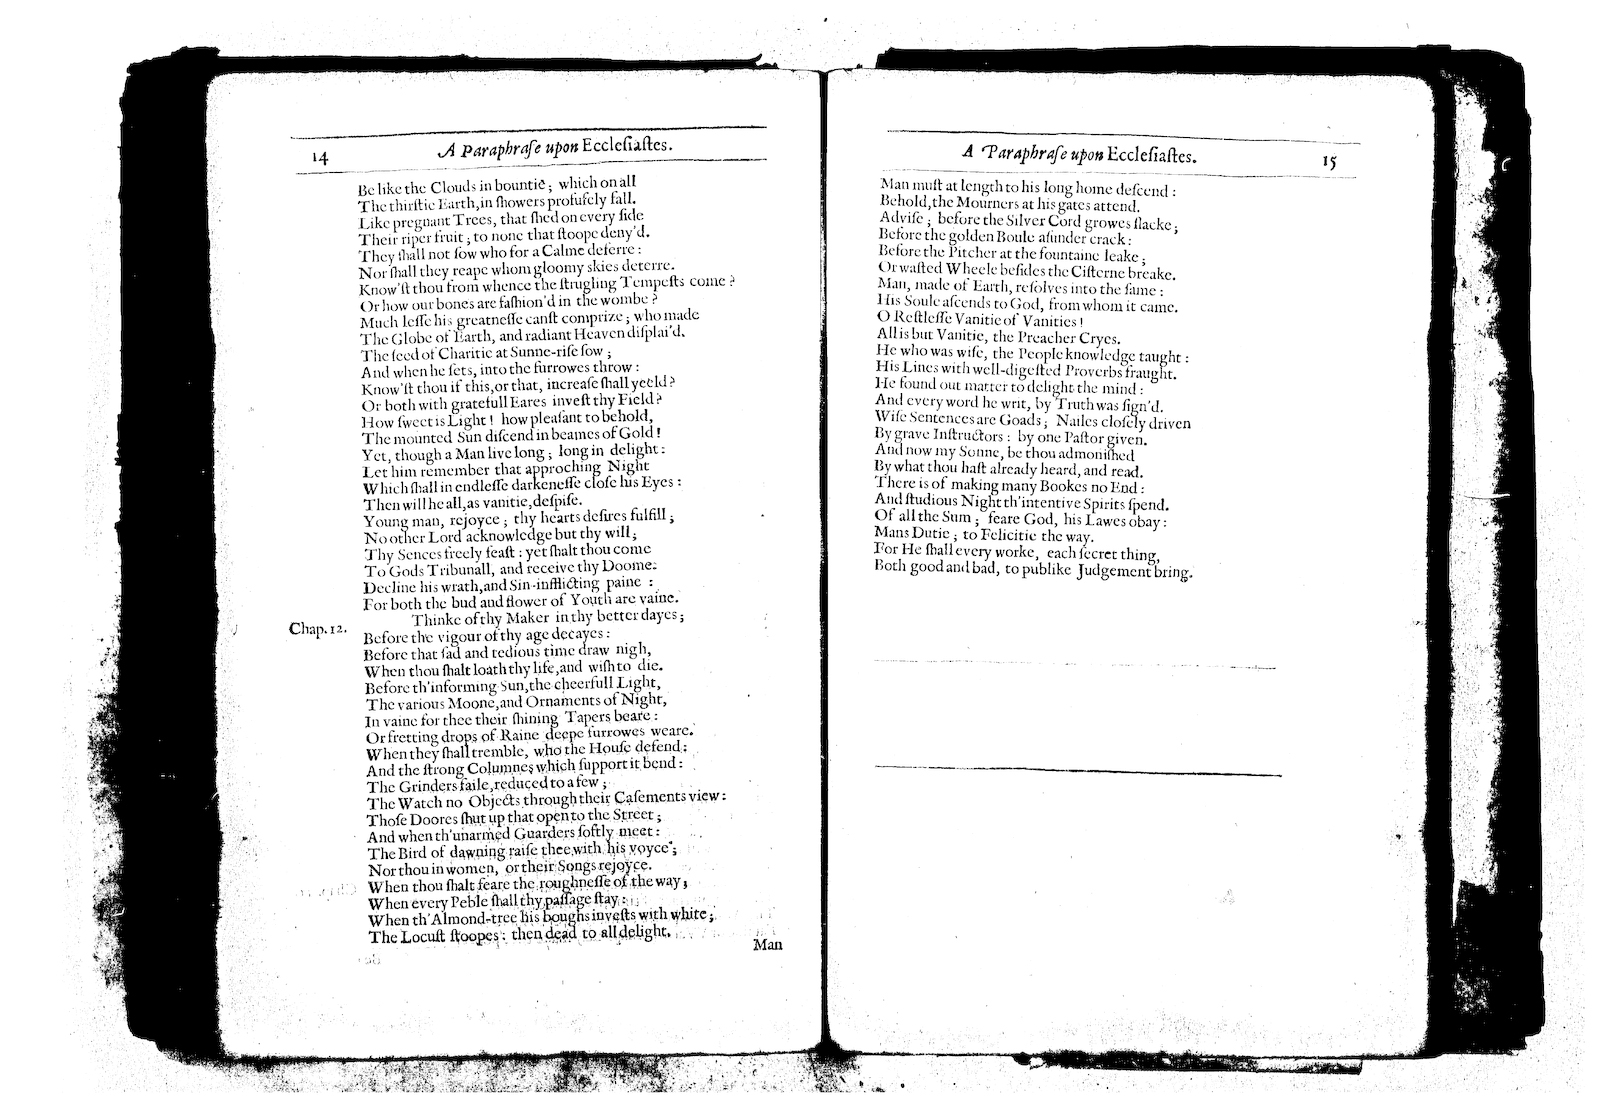 14 A Paraphraſe upon Eccleſiaſtes.
Be like the Clouds in bountie; which on all
The thirſtie Earth, in ſhowers profuſely fall.
Like pregnant Trees, that ſhed on every ſide
Their riper fruit; to none that ſtoope deny'd.
They ſhall not ſow who for a Calme deferre:
Nor ſhall they reape whom gloomy skies deterre.
Know'ſt thou from whence the ſtrugling Tempeſts come?
Or how our bones are faſhion'd in the wombe?
Much leſſe his greatneſſe canſt comprize; who made
The Globe of Earth, and radiant Heaven diſplai'd.
The ſeed of Charitie at Sunne-riſe ſow;
And when he ſets, into the furrowes throw:
Know'ſt thou if this, or that, increaſe ſhall yeeld?
Or both with gratefull Eares inveſt thy Field?
How ſweet is Light! how pleaſant to behold,
The mounted Sun diſcend in beames of Gold!
Yet, though a Man live long; long in delight:
Let him remember that approching Night
Which ſhall in endleſſe darkeneſſe cloſe his Eyes:
Then will he all, as vanitie, deſpiſe.
Young man, rejoyce; thy hearts deſires fulfill;
No other Lord acknowledge but thy will;
Thy Sences freely feaſt: yet ſhalt thou come
To Gods Tribunall, and receive thy Doome.
Decline his wrath, and Sin-inflicting paine:
For both the bud and flower of Youth are vaine.
Chap. 12. Thinke of thy Maker in thy better dayes;
Before the vigour of thy age decayes:
Before that ſad and tedious time draw nigh,
When thou ſhalt loath thy life, and wiſh to die.
Before th'informing Sun, the cheerfull Light,
The various Moone, and Ornaments of Night,
In vaine for thee their ſhining Tapers beare:
Or fretting drops of Raine deepe furrowes weare.
When they ſhall tremble, who the Houſe defend:
And the ſtrong Columnes which ſupport it bend:
The Grinders faile, reduced to a few;
The Watch no Objects through their Caſements view:
Thoſe Doores ſhut up that open to the Street;
And when th'unarmed Guarders ſoftly meet:
The Bird of dawning raiſe thee with his voyce;
Nor thou in women, or their Songs rejoyce.
When thou ſhalt feare the roughneſſe of the way;
When every Peble ſhall thy paſſage ſtay:
When th'Almond-tree his boughs inveſts with white;
The Locuſt ſtoopes: then dead to all delight.
Man
A Paraphraſe upon Eccleſiaſtes. 15
Man muſt at length to his long home deſcend:
Behold, the Mourners at his gates attend.
Adviſe; before the Silver Cord growes ſlacke;
Before the golden Boule aſunder crack:
Before the Pitcher at the fountaine leake;
Or waſted Wheele beſides the Ciſterne breake.
Man, made of Earth, reſolves into the ſame:
His Soule aſcends to God, from whom it came.
O Reſtleſſe Vanitie of Vanities!
All is but Vanitie, the Preacher Cryes.
He who was wiſe, the People knowledge taught:
His Lines with well-digeſted Proverbs fraught.
He found out matter to delight the mind:
And every word he writ, by Truth was ſign'd.
Wiſe Sentences are Goads; Nailes cloſely driven
By grave Inſtructors: by one Paſtor given.
And now my Sonne, be thou admoniſhed
By what thou haſt already heard, and read.
There is of making many Bookes no End:
And ſtudious Night th'intentive Spirits ſpend.
Of all the Sum; feare God, his Lawes obay:
Mans Dutie; to Felicitie the way.
For He ſhall every worke, each ſecret thing,
Both good and bad, to publike Judgement bring.